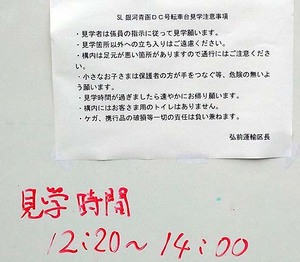 SL 銀河青函ＤＣ号転車台見学注意事項
・見学者は係員の指示に従って見学願います。
・見学箇所以外への立ち入りはご遠慮ください。
・構内は足元が悪い箇所がありますので通行にはご注意くださ
い。
・小さなお子さまは保護者の方が手をつなぐ等、危険の無いよ
う願います。
・見学時間が過ぎましたら速やかにお帰り願います。
・構内にはお客さま用のトイレはありません。
・ケガ、携行品の破損等一切の責任は負い兼ねます。
弘前運輸区長
見学時間
12:20〜14:00